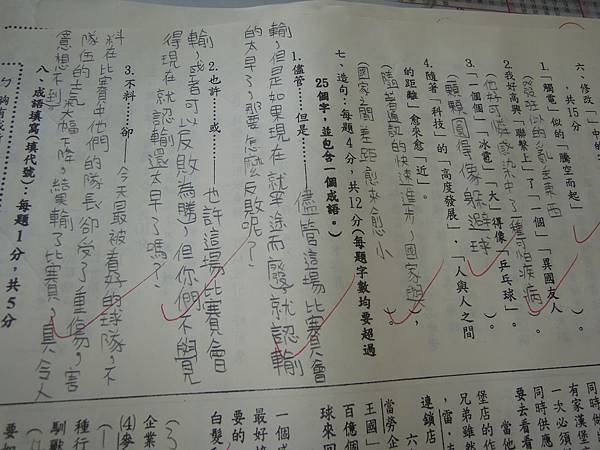 六、修改「」中的
共15分
1.「觸電」似的「騰空而起」
(發狂似的亂丟東西)。
2.我好高興「聯繫上」了「一個」「異國友人」。
(他好可憐感染中了一種可怕疾病)。
3.「一個個」「冰雹」「大」得像「乒乓球」。
(顆顆圓得像躲避球)。
4.隨著「科技」的「高度發展」，「人與人之間
的距離」愈來愈「近」。
(隨著通訊的快速進步，國家與
國家之間差距愈來愈小)。
七、造句：每題4分，共12分(每題字數均要超過
25個字，並包含一個成語。)
1.儘管……但是……儘管這場比賽會
輸，但是如果現在就半途而廢就認輸
的太早了，那要怎麼反敗呢？
2.也許……或……也許這場比賽會
輸，或者可以反敗為勝，但你們不覺
得現在就認輸還太早了嗎？
3.不料……卻……今天最被看好的球隊，不
料在比賽中他們的隊長卻受了重傷，害
隊伍的士氣大幅下降，結果輸了比賽，真令人
意想不到。
八、成語填寫(填代號)：每題1分，共5分
同時供應
一次必須
有家漢堡
要去看看
當他
堡店的作
兄弟雖然
，雷．
連鎖店
六
當勞企
王國」
百億個
球來回
一個
最好
要的
白髮
企業
(4)參
種行
馴獸
要如